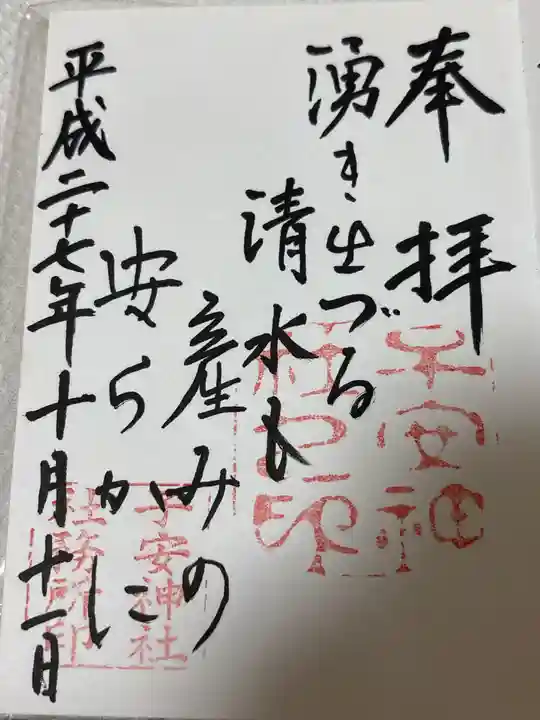 奉拝
湧き出づる
清水も
産みの
安らかに
平成二十七年十月十一日
子安神社印
子安神社
社務所印